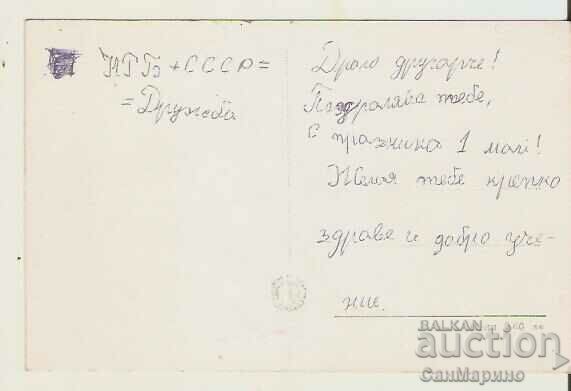 НРБ + СССР =
= Дружба
Драго другарче!
Поздралява тебе,
с празника 1 май!
Желая тебе крепко
здраве и добро уче-
ние.
BALKAN
auction
СанМарино